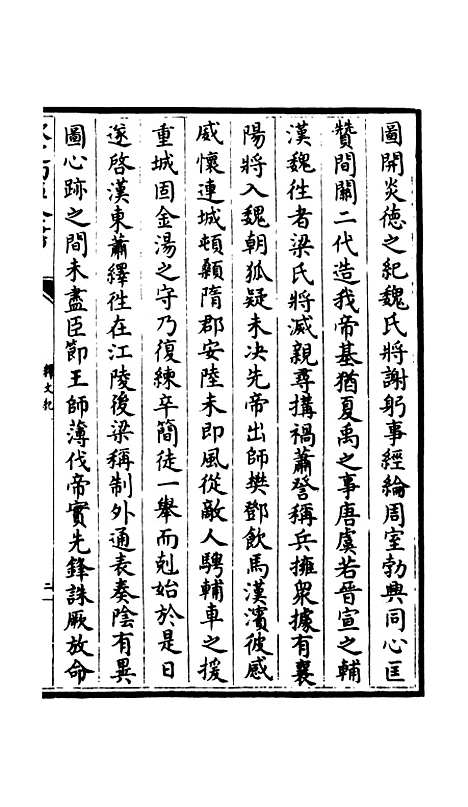 圖開炎德之紀魏氏將謝躬事經綸周室勃興同心匡
贊間關二代造我帝基猶夏禹之事唐虞若晉宣之輔
漢魏徃者梁氏將滅親尋搆禍蕭詧稱兵擁衆據有襄
陽將入魏朝狐疑未决先帝出師樊鄧飲馬漢濱彼感
威懷連城頓顙隋郡安陸未即風從敵人騁輔車之援
重城固金湯之守乃復練卒簡徒一舉而剋始於是日
遂啓漢東蕭繹徃在江陵後梁稱制外通表奏陰有異
圖心跡之間未盡臣節王師薄伐帝實先鋒誅厥放命
釋文紀
二